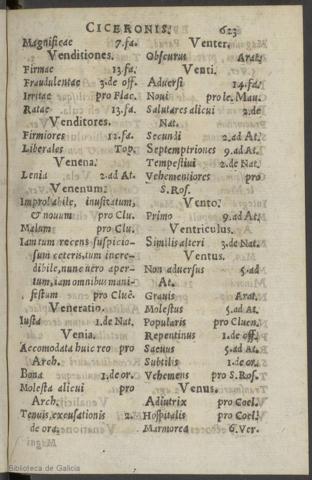 CICERONIS. 623
Magnificae 7.fa.
Venditiones.
Firmae 13.fa.
Fraudulentae 3.de off.
Irritae pro Flac.
Ratae 13.fa.
Venditores.
Firmiores 12.fa.
Liberales Top.
Venena.
Lenia 2.ad At.
Venenum.
Improbabile, inusitatum,
& nouum pro Clu.
Malum pro Clu.
Iam tum recens suspicio-
sum ceteris, tum incre-
dibile, nunc vero aper-
tum, iam omnibus mani-
festum pro Cluē.
Veneratio.
Iusta 1.de Nat.
Venia.
Accomodata huic reo pro
Arch.
Bona 1.de or.
Molesta alicui pro
Arch.
Tenuis, excusationis 2.
de ora.
Venter.
Obscurus Arat.
Venti.
Aduersi 14.fa.
Noui pro le. Man.
Salutares alicui 2.de
Nat.
Secundi 2.ad At.
Septemptriones 9.ad At.
Tempestiui 2.de Nat.
Vehementiores pro
S.Ros.
Vento.
Primo 9.ad At.
Ventriculus.
Similis alteri 3.de Nat.
Ventus.
Non aduersus 5.ad
At.
Grauis Arat.
Molestus 5.ad At.
Popularis pro Cluen.
Repentinus 1.de off.
Saeuus 5.ad At.
Subtilis 1.de or.
Vehemens pro S.Ros.
Venus.
Adiutrix pro Coel.
Hospitalis pro Coel.
Marmorea 6.Ver.
Magni
Biblioteca de Galicia